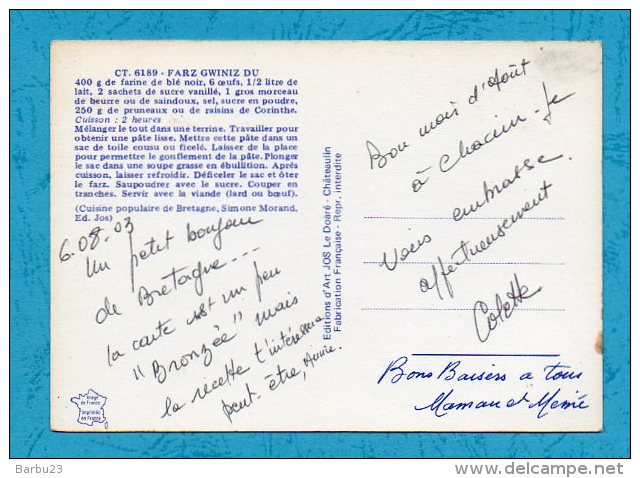 CT. 6189 - FARZ GWINIZ DU
400 g de farine de blé noir, 6 œufs, 1/2 litre de
lait, 2 sachets de sucre vanillé, 1 gros morceau
de beurre ou de saindoux, sel, sucre en poudre,
250 g de pruneaux ou de raisins de Corinthe.
Cuisson : 2 heures
Mélanger le tout dans une terrine. Travailler pour
obtenir une pâte lisse. Mettre cette pâte dans un
sac de toile cousu ou ficelé. Laisser de la place
pour permettre le gonflement de la pâte. Plonger
le sac dans une soupe grasse en ébullition. Après
cuisson, laisser refroidir. Déficeler le sac et ôter
le farz. Saupoudrer avec le sucre. Couper en
tranches. Servir avec la viande (lard ou bœuf).
(Cuisine populaire de Bretagne, Simone Morand.
Ed. Jos)
6.08.03
Un petit bonjour
de Bretagne ---
la carte est un peu
"Bronzée" mais
la recette t'intéressera
peut-être, Annie.
Image de France
Imprimée en France
Editions d'Art JOS Le Doaré - Châteaulin
Fabrication Française - Repr. interdite
Bon mois d'Août
à Chacun - Je
Vous embrasse
affectueusement
Colette
Bons Baisers a tous
Maman et Mémé
Barbu23
www.delcampe.net